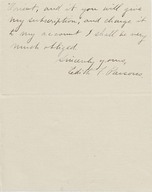 and if you will give
my subscription, and charge it
to my account I shall be very
much obliged
Sincerely yours,
Edith Parsons